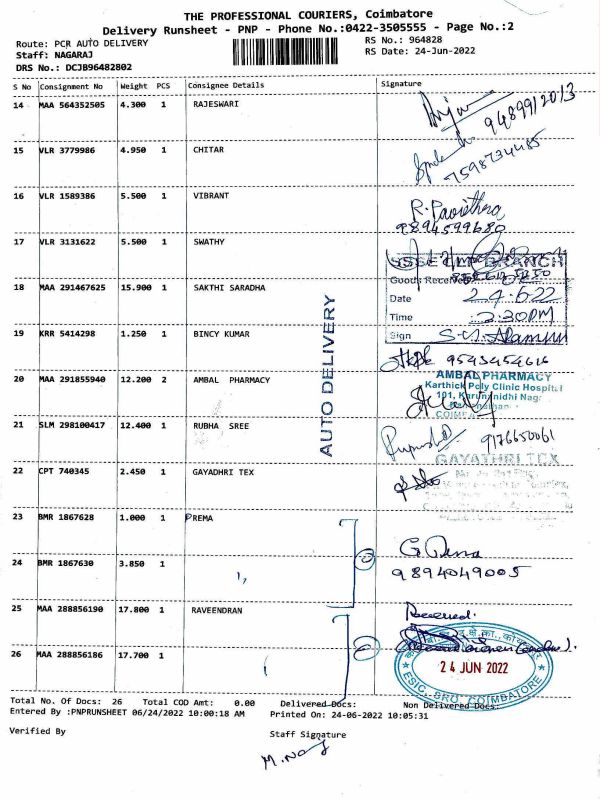 THE PROFESSIONAL COURIERS, Coimbatore
Delivery Runsheet - PNP - Phone No.:0422-3505555 - Page No.:2
Route: PCR AUTO DELIVERY
RS No.: 964828
Staff: NAGARAJ
RS Date: 24-Jun-2022
DRS No.: DCJB96482802
S No Consignment No Weight PCS Consignee Details Signature
14 MAA 564352505 4.300 1 RAJESWARI
9489912013
15 VLR 3779986 4.950 1 CHITAR
7598734485
16 VLR 1589386 5.500 1 VIBRANT
R. Pavithra
9894599680
17 VLR 3131622 5.500 1 SWATHY
BRANCH
Goods Received
18 MAA 291467625 15.900 1 SAKTHI SARADHA
Date 24.6.22
Time 2:30PM
Sign
19 KRR 5414298 1.250 1 BINCY KUMAR
9543454616
20 MAA 291855940 12.200 2 AMBAL PHARMACY
AMBAL PHARMACY
Karthick Poly Clinic Hospital
AUTO DELIVERY
21 SLM 298100417 12.400 1 RUBHA SREE
9176650061
GAYATHRI TEX
22 CPT 740345 2.450 1 GAYADHRI TEX
23 BMR 1867628 1.000 1 PREMA
24 BMR 1867630 3.850 1
9894049005
25 MAA 288856190 17.800 1 RAVEENDRAN
Received
26 MAA 288856186 17.700 1
24 JUN 2022
ESIC, SRO, COIMBATORE
Total No. Of Docs: 26 Total COD Amt: 0.00 Delivered Docs: Non Delivered Docs:
Entered By :PNPRUNSHEET 06/24/2022 10:00:18 AM Printed On: 24-06-2022 10:05:31
Verified By
Staff Signature